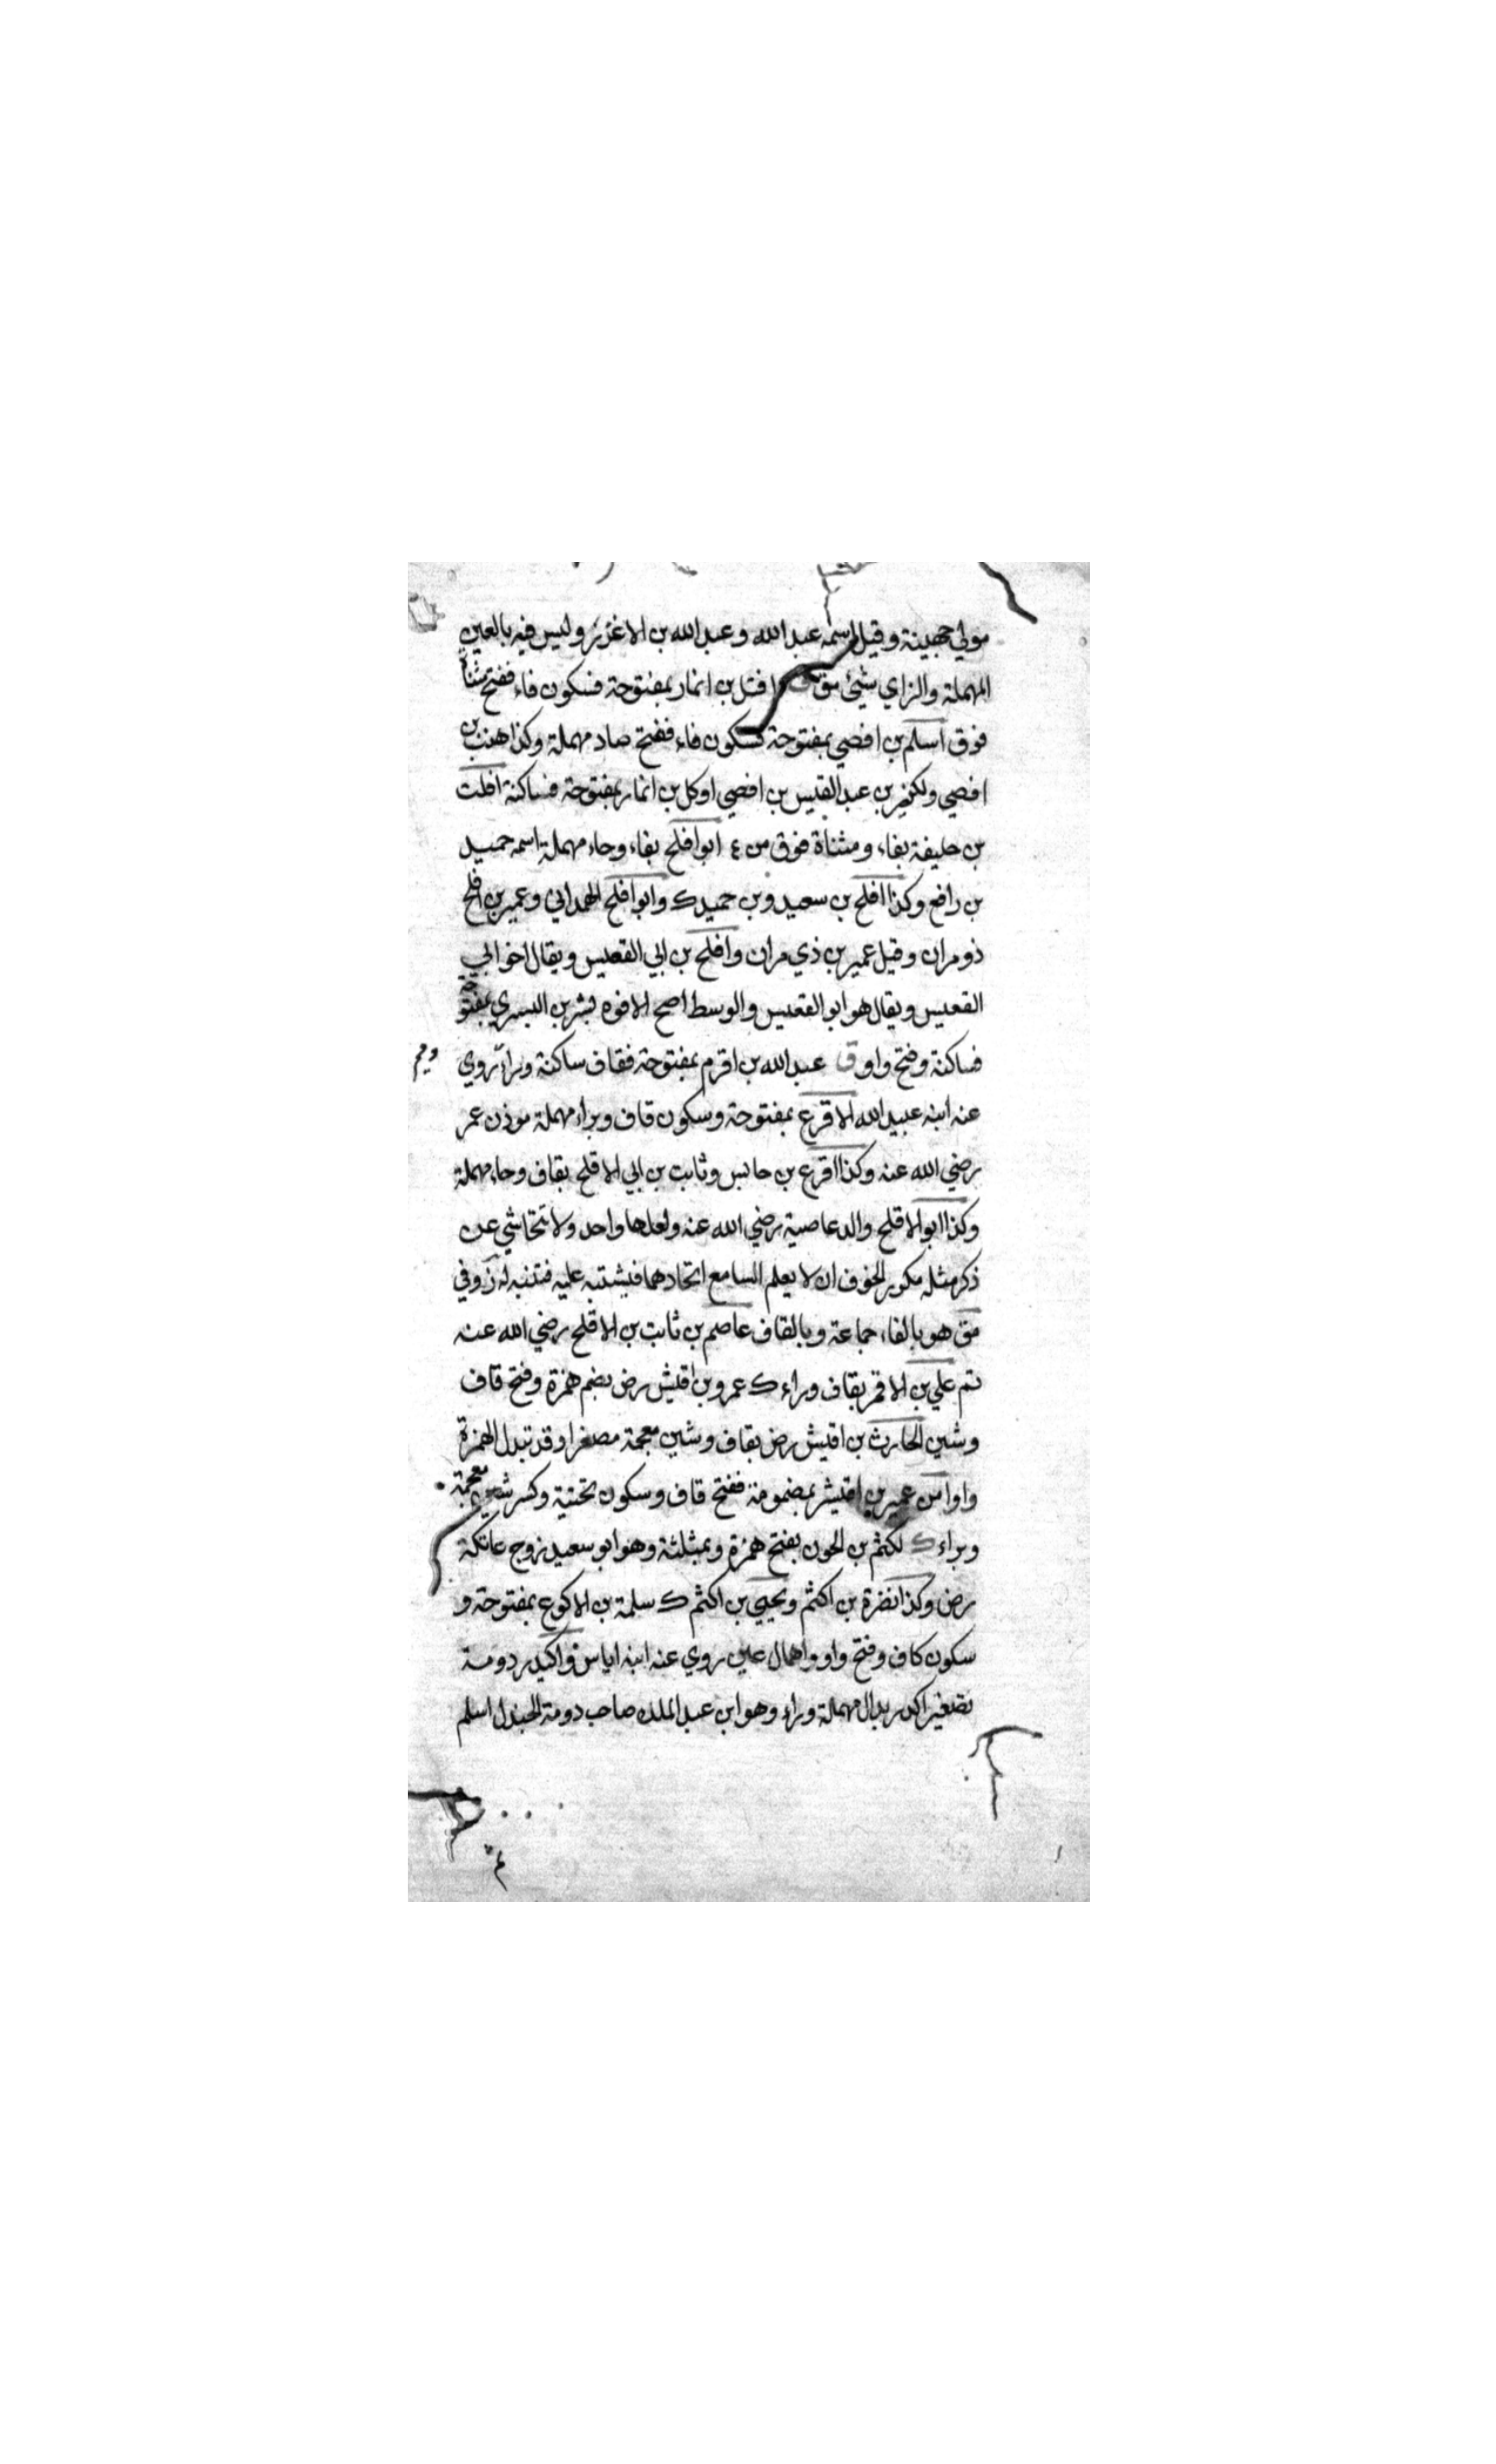 مولي جهينة وقيل اسمه عبد الله وعبد الله بن الاغر نر وليس فيه بالعين
المهملة والزاي شيئ مق افتل بن انمار بمفتوحة فسكون فاء ففتح مثناة
فوق اسلم بن افصي بمفتوحة فسكون فاء ففتح صاد مهملة وكذا هنب بن
افصي ولكيز بن عبد القيس بن افصي اوكل بن انمار بمفتوحة فساكنة افلت
بن خليفة بفاء ومثناة فوق من ٤ ابو افلح بفاء وحاء مهملة اسمه حميد
بن رافع وكذا افلح بن سعيد وبن حميد ك وابو افلح الهمداني وعمير بن افلح
ذو مران وقيل عمير بن ذي مران وافلح بن ابي القعيس ويقال اخو ابي
القعيس ويقال هو ابو القعيس والوسط اصح الافوه بشر بن السري بمفتوحة
فساكنة وفتح واو ق عبد الله بن اقرم بمفتوحة فقاف ساكنة وراء روي
وميم
عنه ابنه عبيد الله الاقرع بمفتوحة وسكون قاف وبراء مهملة موذن عمر
رضي الله عنه وكذا اقرع بن حابس وثابت بن ابي الاقلح بقاف وحاء مهملة
وكذا ابو الاقلح والد عاصية رضي الله عنه ولعلها واحد ولا نتحاشي عن
ذكر مثله مكرر لخوف ان لا يعلم السامع اتحادهما فيشتبه عليه فتنبه له ز وفي
مق هو بالفاء جماعة وبالقاف عاصم بن ثابت بن الاقلح رضي الله عنه
تم علي بن الاقمر بقاف وراء ك عمرو بن اقيش رض بضم همزة وفتح قاف
وشين الحارث بن اقيش رض بقاف وشين معجمة مصغرا وقد تبدل الهمزة
واوا من عمير بن اقيشر بمضمومة ففتح قاف وسكون تحتية وكسر شين معجمة
وبراء ك لكثم بن الجون بفتح همزة وبمثلثة وهو ابو سعيد زوج عاتكة
رض وكذا نضرة بن اكثم ويحيي بن اكثم ك سلمة بن الاكوع بمفتوحة و
سكون كاف وفتح واو واهمال عين روي عنه ابنه اياس واكيدر دومة
تصغير اكدر بدال مهملة وراء وهو ابن عبد الملك صاحب دومة الجندل اسلم